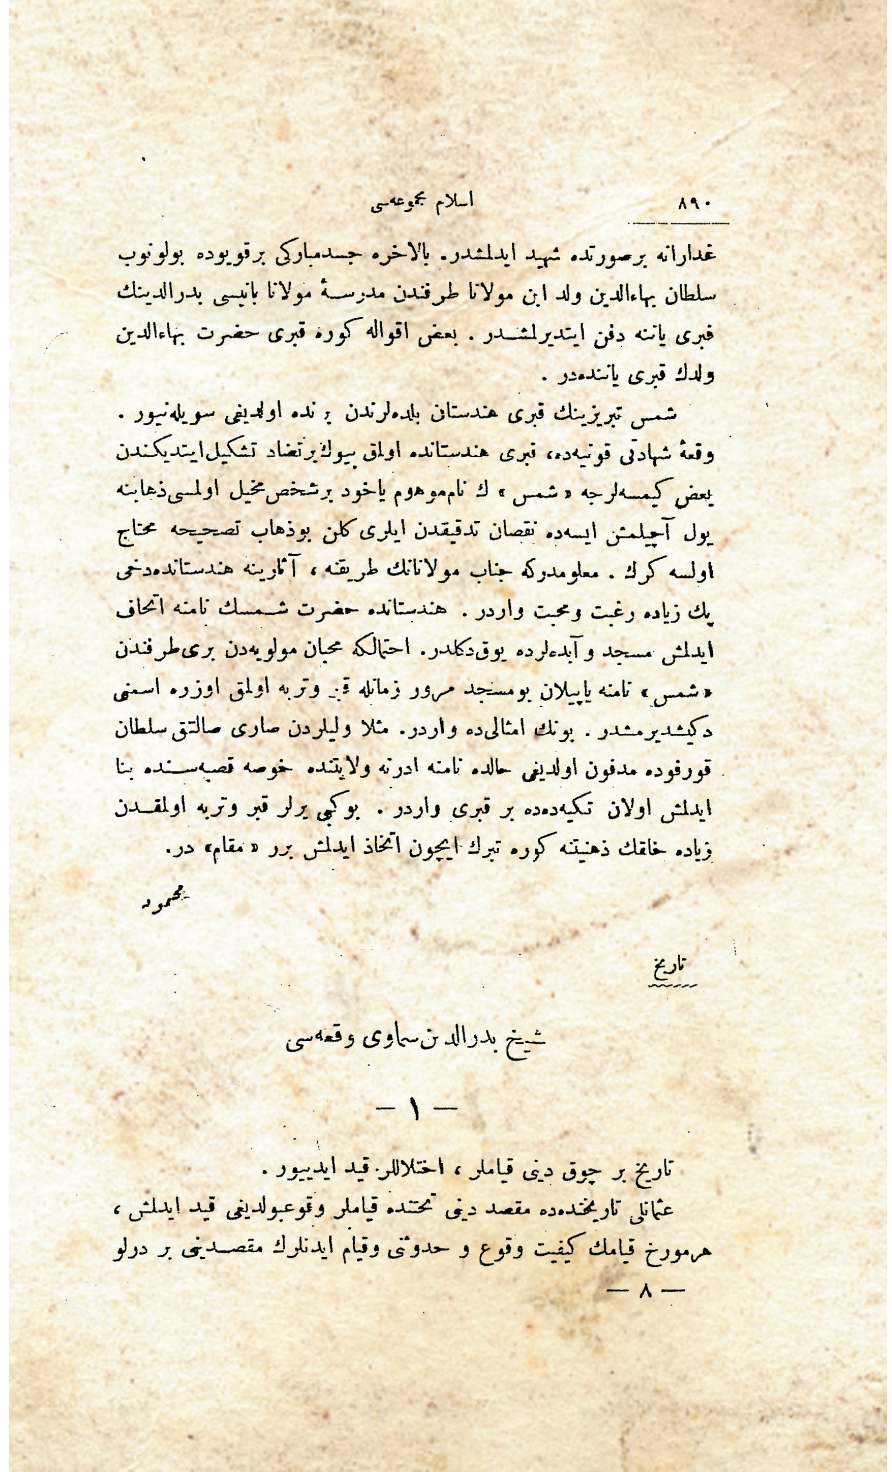 ٨٩٠
اسلام مجموعه‌سی
غدارانه برصورتده شهید ایدلمشدر. بالاخره جسدمبارکی برقویوده بولونوب
سلطان بهاءالدین ولد ابن مولانا طرفندن مدرسهٔ مولانا بانیسی بدرالدینك
قبری یاننه دفن ایتدیرلمشدر . بعض اقواله کوره قبری حضرت بهاءالدین
ولدك قبری یاننده‌در .
شمس تبریزینك قبری هندستان بلده‌لرندن برنده اولدیغی سویله‌نیور .
وقعهٔ شهادتی قونیه‌ده، قبری هندستانده اولمق بیوك برتضاد تشکیل‌ایتدیکندن
بعض کیمسه‌لرجه «شمس» ك نام‌موهوم یاخود برشخص‌مخیل اولمسی‌ذهابنه
یول آچیلمش ایسه‌ده نقصان تدقیقدن ایلری کلن بوذهاب تصحیحه محتاج
اولسه کرك . معلومدرکه جناب مولانانك طریقنه ، آثارینه هندستانده‌دخی
پك زیاده رغبت ومحبت واردر . هندستانده حضرت شمسك نامنه اتحاف
ایدلمش مسجد و آبده‌لرده یوق‌دکلدر. احتمالکه محبان مولویه‌دن بری‌طرفندن
«شمس» نامنه یاپیلان بومسجد مرور زمانله قبر وتربه اولمق اوزره اسمنی
دکیشدیرمشدر . بونك امثالی‌ده واردر. مثلا ولیلردن صاری صالتق سلطان
قورفوده مدفون اولدیغی حالده نامنه ادرنه ولایتنده خوصه قصبه‌سنده بنا
ایدلمش اولان تکیه‌ده‌ده بر قبری واردر . بوکبی یرلر قبر وتربه اولمقدن
زیاده خلقك ذهنیتنه کوره تبرك ایچون اتخاذ ایدلمش برر «مقام» در.
محمود
تاریخ
شیخ بدرالدین سماوی وقعه‌سی
— ١ —
تاریخ بر چوق دینی قیاملر ، اختلاللر قید ایدییور .
عثمانلی تاریخنده‌ده مقصد دینی تحتنده قیاملر وقوعبولدیغی قید ایدلمش ،
هرمورخ قیامك کیفیت وقوع و حدوثنی وقیام ایدنلرك مقصدینی بر درلو
— ٨ —